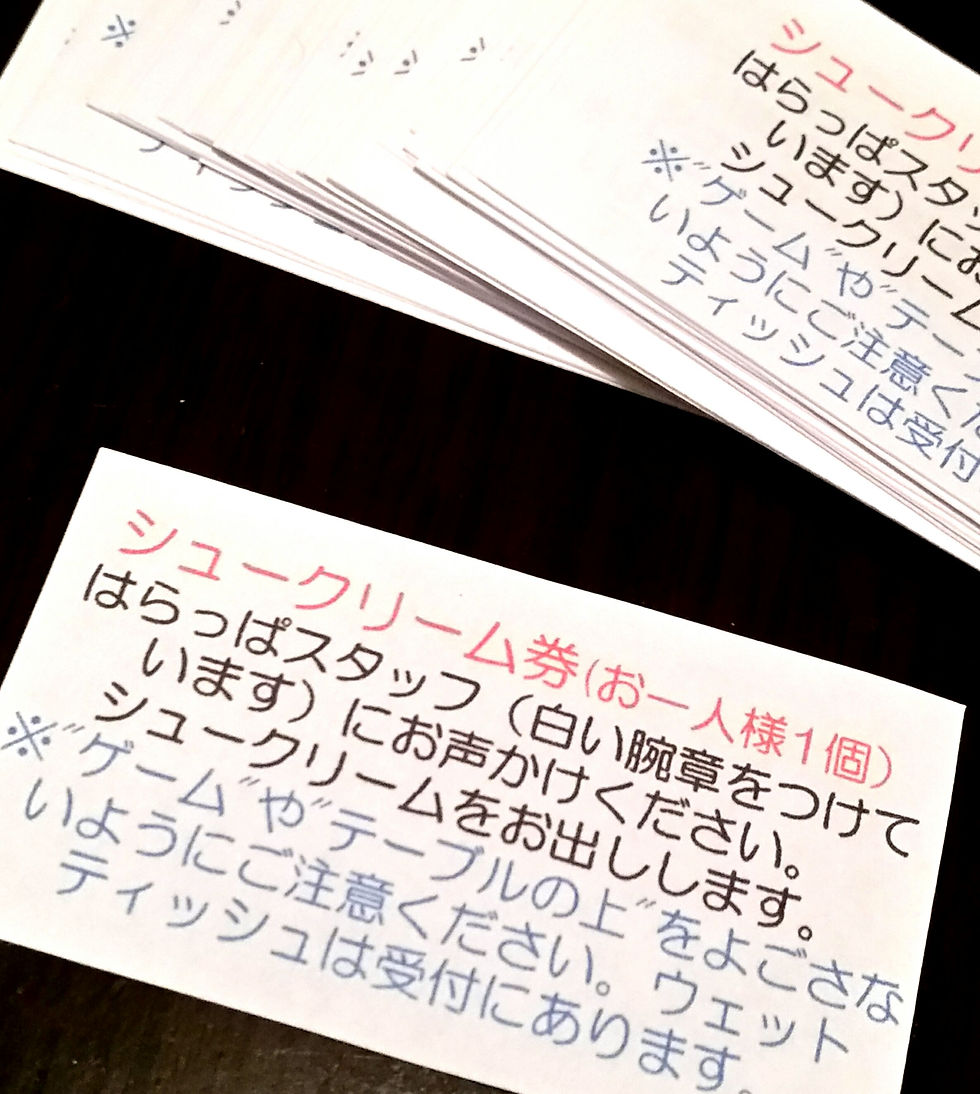 シュークリ
はらっぱスタッ
います）にお
シュークリーム
※〝ゲーム〟や〝テーブ
いようにご注意くだ
ティッシュは受付
シュークリーム券(お一人様1個)
はらっぱスタッフ（白い腕章をつけて
います）にお声かけください。
シュークリームをお出しします。
※〝ゲーム〟や〝テーブルの上〟をよごさな
いようにご注意ください。ウェット
ティッシュは受付にあります。